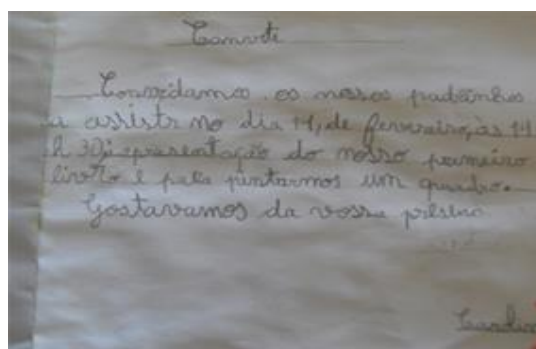 Convite
Convidamos os nossos padrinhos
a assistir no dia 14, de fevereiro, às 14
h 30, apresentação do nosso primeiro
livro e para pintarmos um quadro.
Gostavamos da vossa